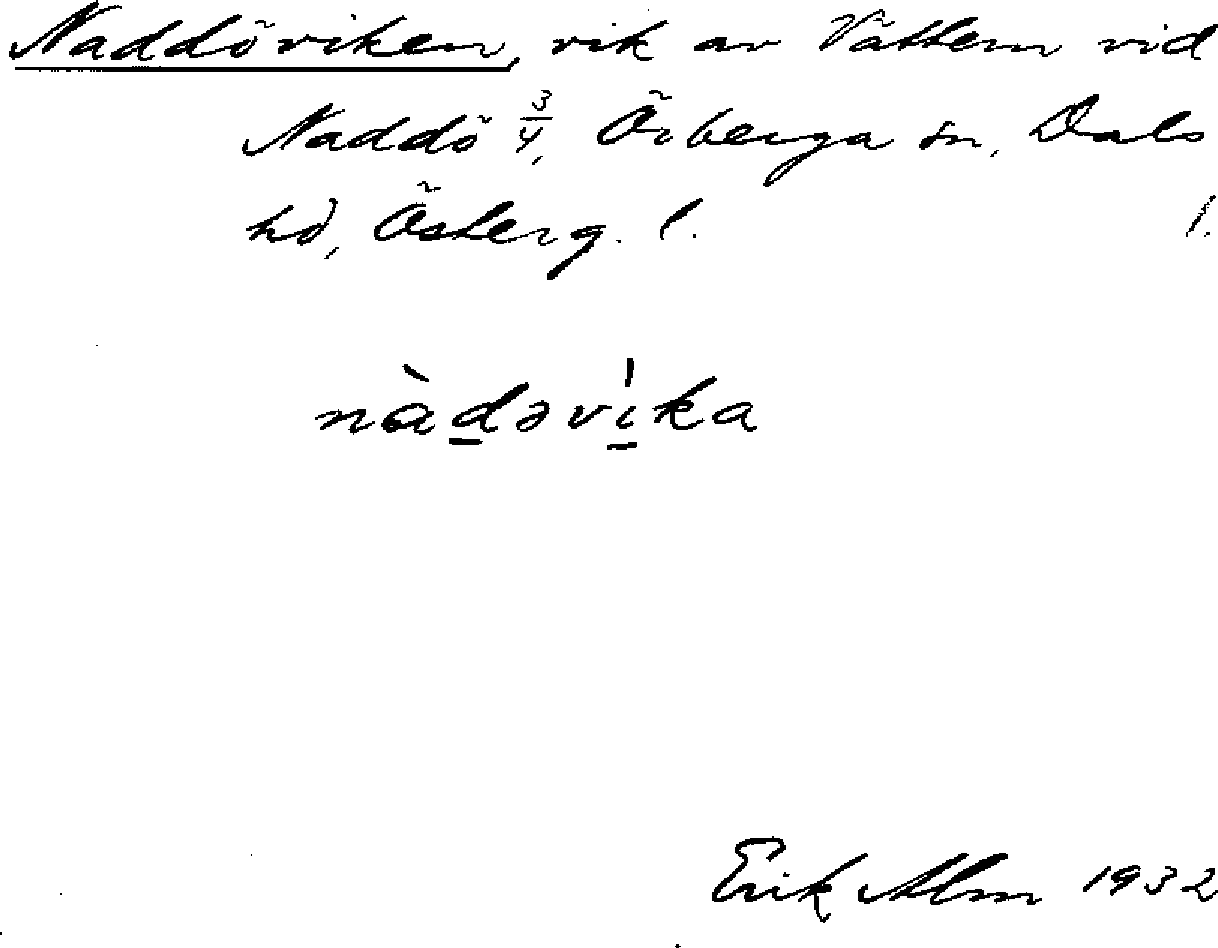 Naddöviken, vik av Vättern vid
Naddö 3/4, Örberga sn, Dals
hd, Österg. l. 1.
nàd̲əvi̲̍ka
Erik Alm 1932